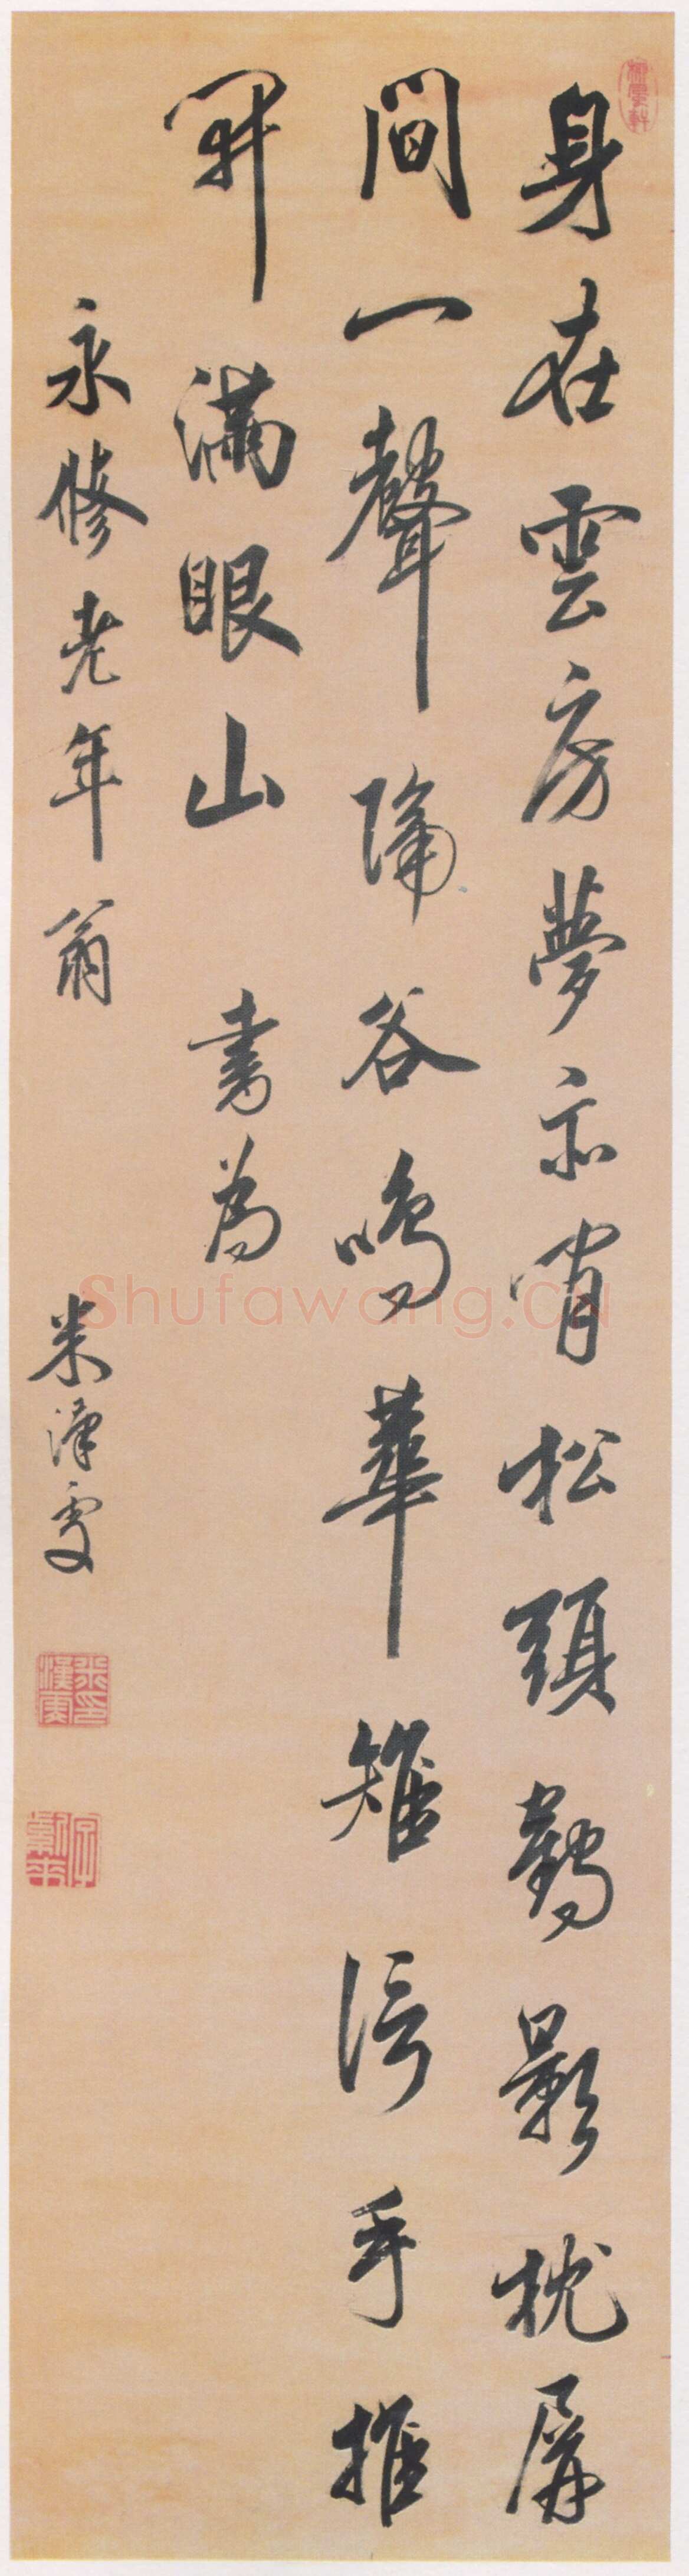 身在雲房夢亦閒松頭鶴影枕屏
間一聲隔谷鳴華雉信手推
開滿眼山 書為
永修老年翁 米漢雯
米印漢雯
Shufawang.CN